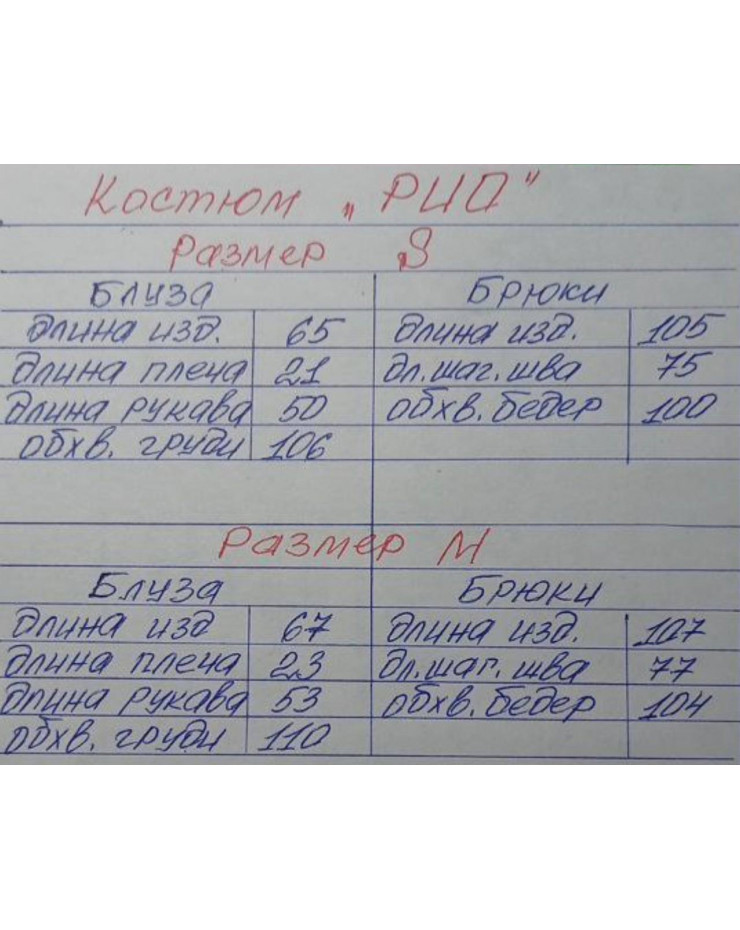 Костюм „РИО"
Размер S
Блуза Брюки
длина изд. 65 длина изд. 105
длина плеча 21 дл. шаг. шва 75
длина рукава 50 обхв. бедер 100
обхв. груди 106
Размер М
Блуза Брюки
длина изд 67 длина изд. 107
длина плеча 23 дл. шаг. шва 77
длина рукава 53 обхв. бедер 104
обхв. груди 110